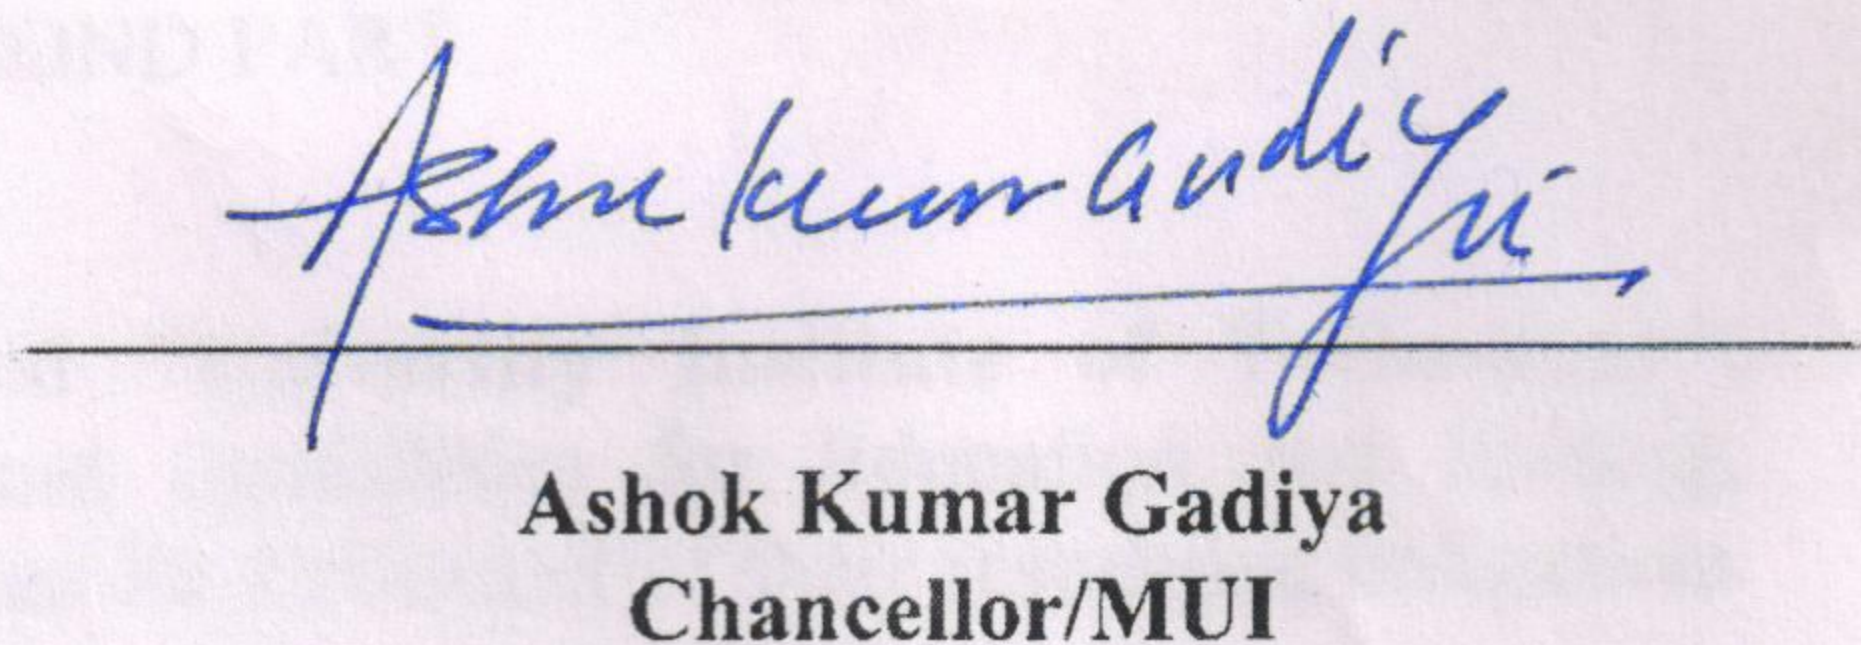 Ashok Kumar Gadiya
Ashok Kumar Gadiya
Chancellor/MUI